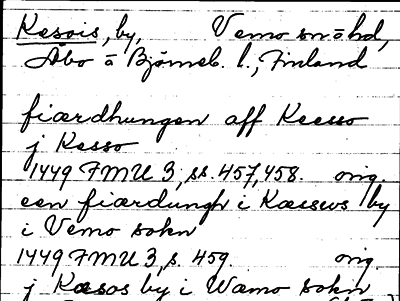 Kesois, by, Vemo sn o hd,
Åbo o Björneb. l., Finland
fiærdhungen aff Keesso
j Kesso
1449 FMU 3, ss. 457, 458. orig.
een fiærdungh i Kæssws by
i Vemo sokn
1449 FMU 3, s. 459 orig
j Kæsos by i Wæmo sokn